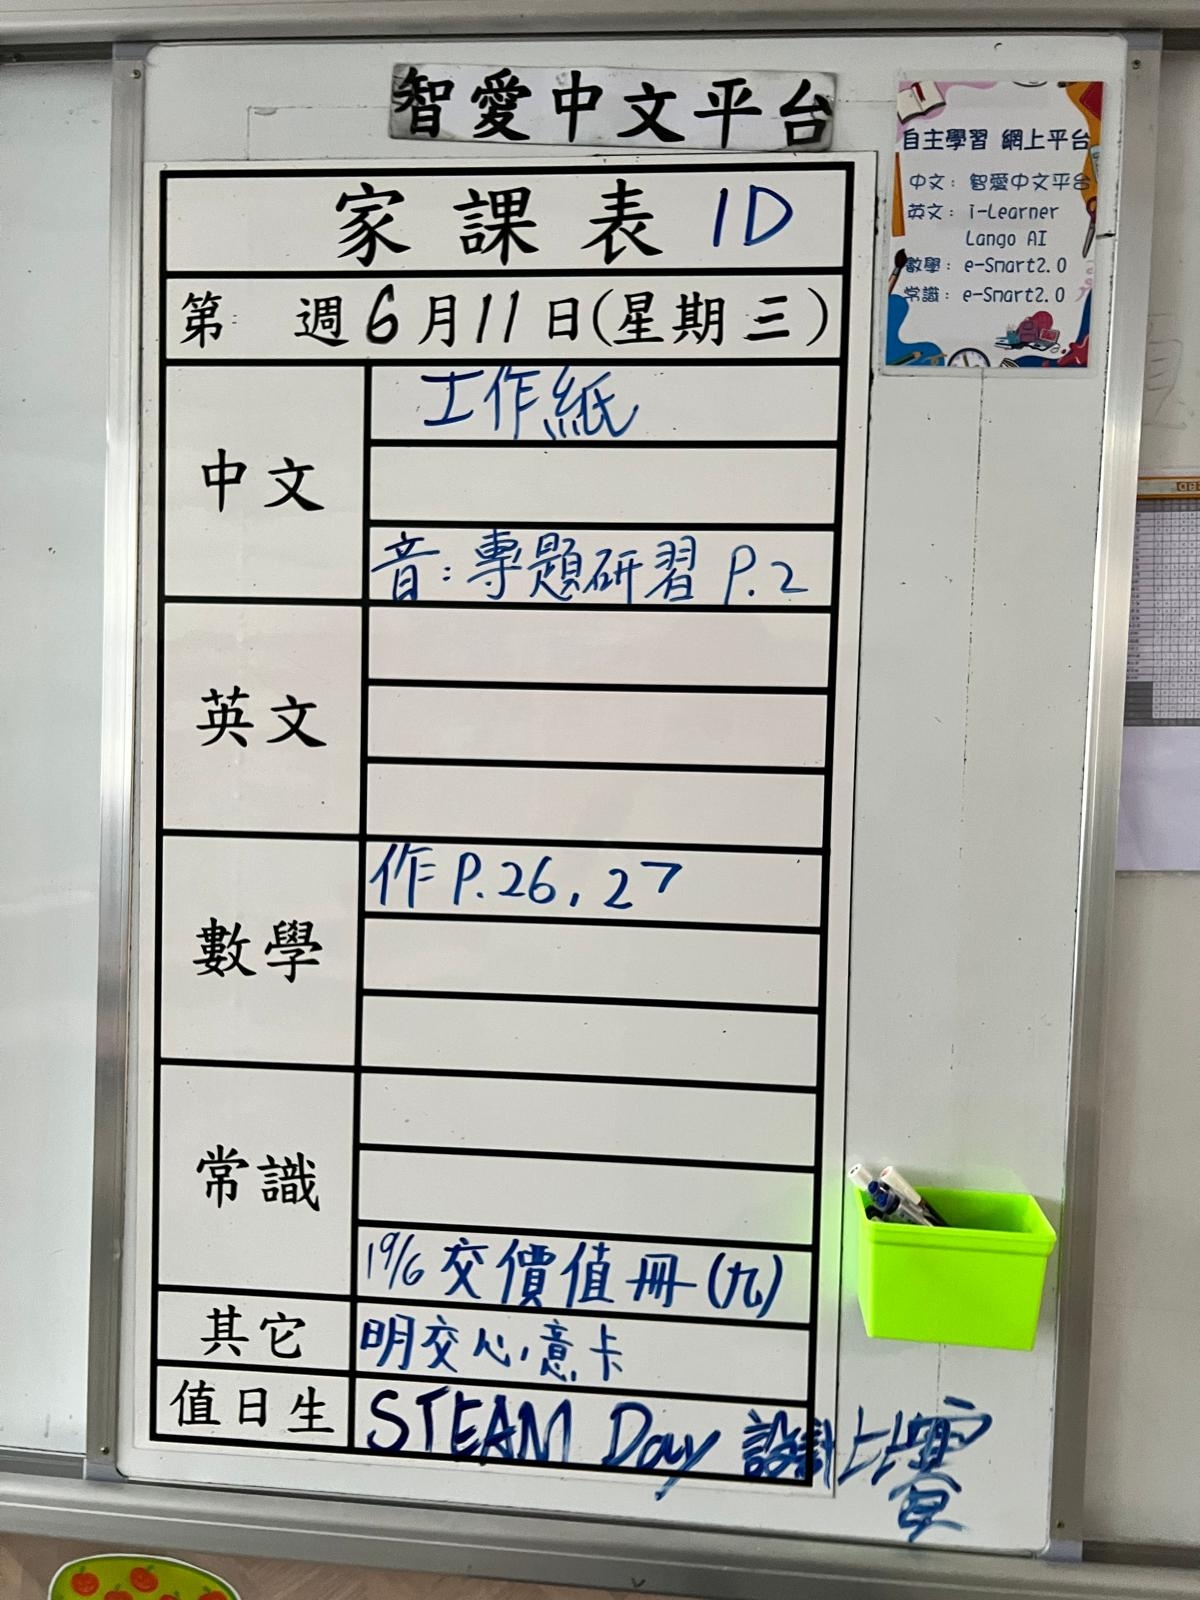 智愛中文平台
自主學習 網上平台
中文：智愛中文平台
英文：i-Learner
Lango AI
數學：e-Smart2.0
常識：e-Smart2.0
家課表 1D
第 週6月11日(星期三)
中文
工作紙
音：專題研習 P.2
英文
數學
作 P.26，27
常識
19/6 交價值冊(九)
其它
明交心意卡
值日生
STEAM Day 設計比賽